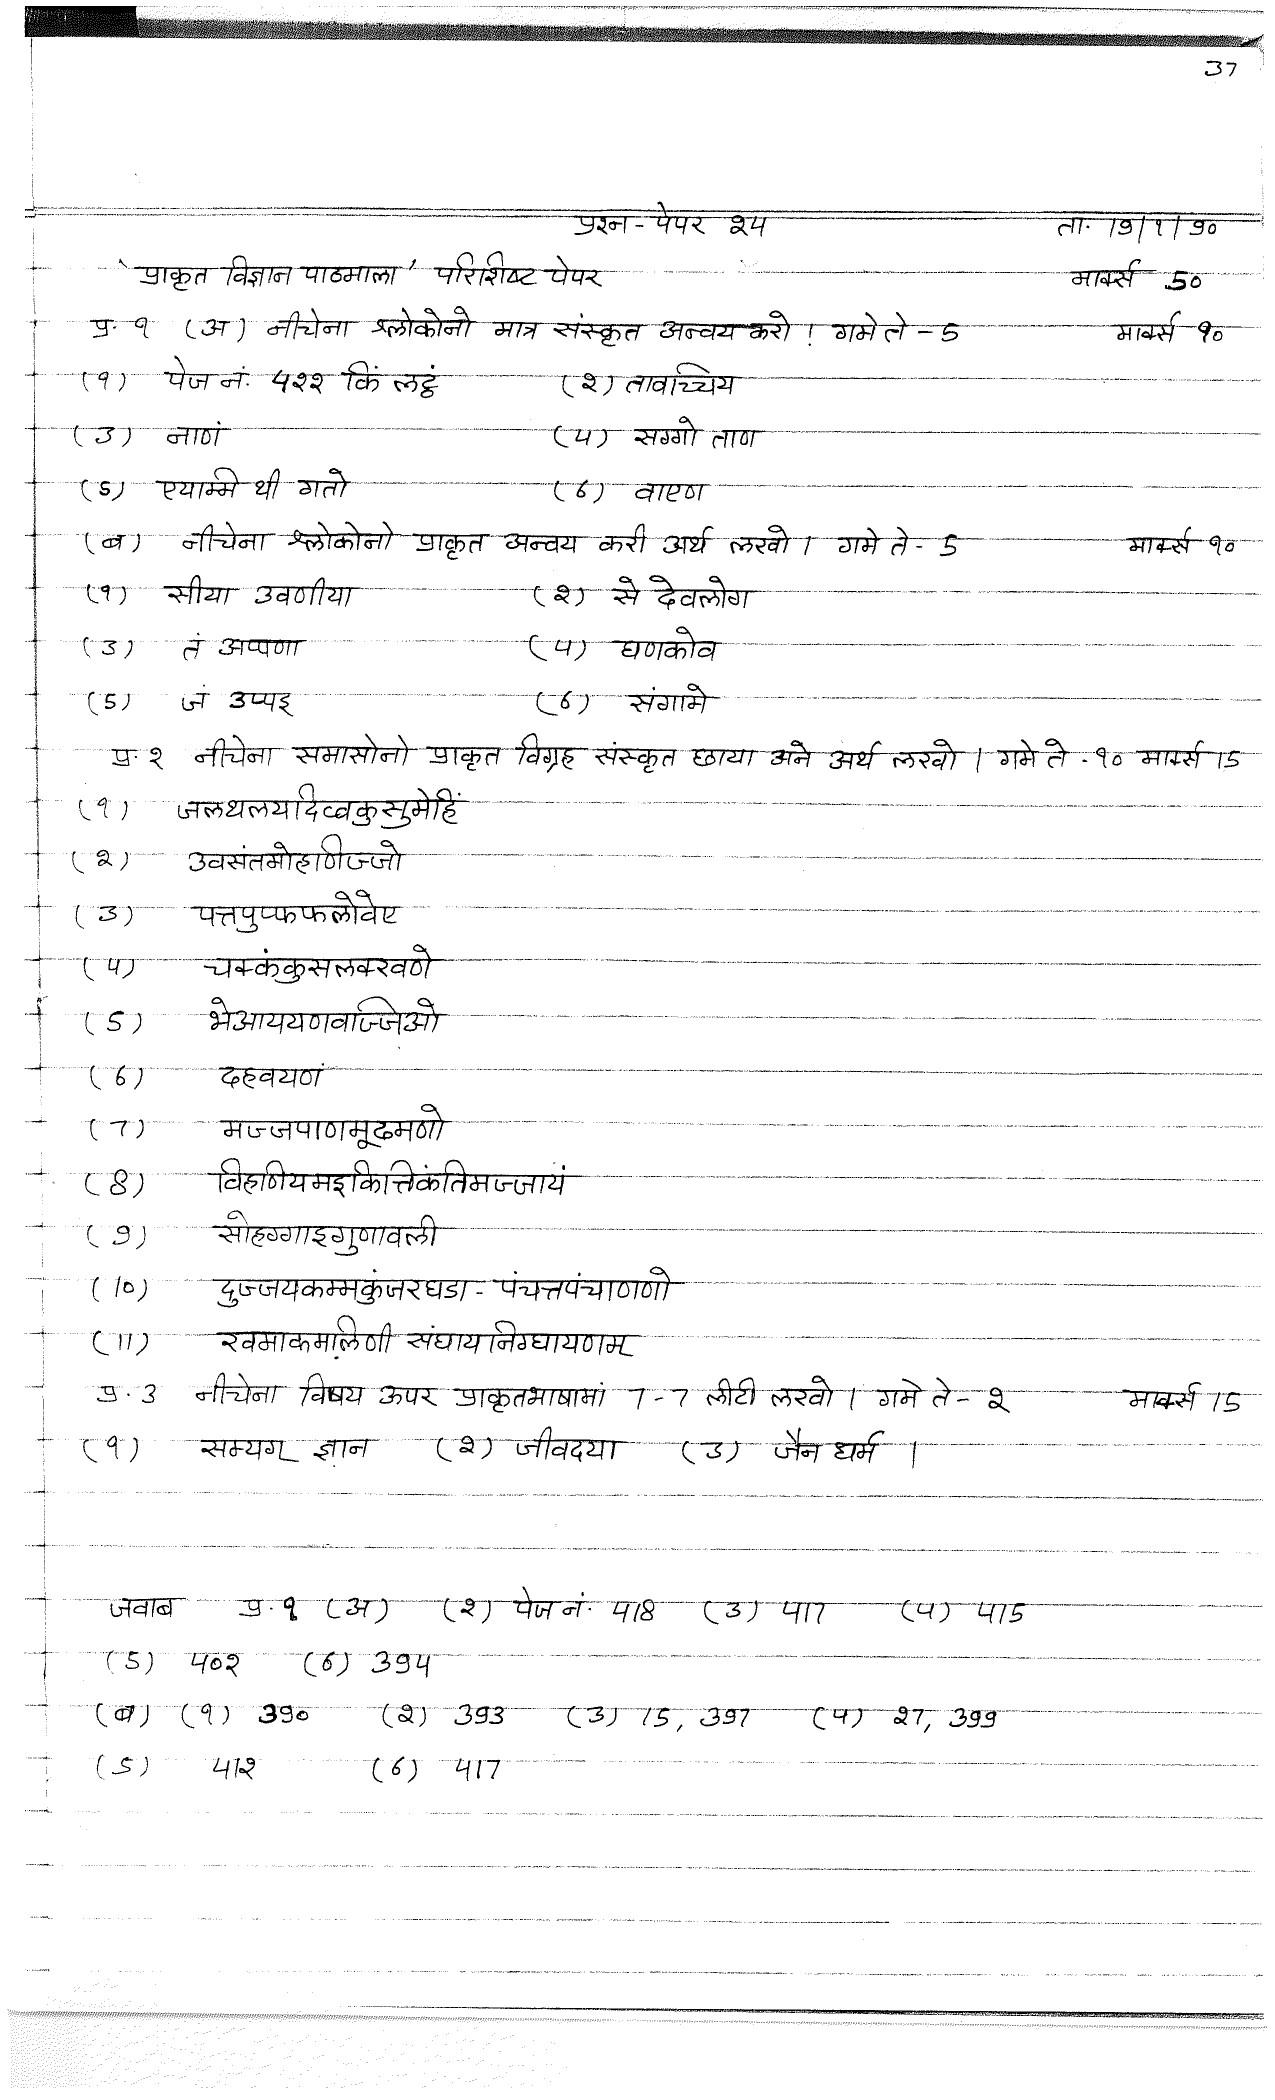 37
प्रश्न-पेपर २4 ता. 19/1/९०
'प्राकृत विज्ञान पाठमाला' परिशिष्ट पेपर मार्क्स 50
प्र. १ (अ) नीचेना श्लोकोनो मात्र संस्कृत अन्वय करो ! गमे ते - 5 मार्क्स १०
(१) पेज नं. 4२२ किं लट्ठं (२) तावच्चिय
(3) नाणं (4) सग्गो ताण
(5) एयाम्मि थी गतो (6) वाएण
(ब) नीचेना श्लोकोनो प्राकृत अन्वय करी अर्थ लखो । गमे ते - 5 मार्क्स १०
(१) सीया उवणीया (२) से देवलोग
(3) तं अप्पणा (4) घणकोव
(5) जं उप्पइ (6) संगामे
प्र. २ नीचेना समासोनो प्राकृत विग्रह संस्कृत छाया अने अर्थ लखो । गमे ते - १० मार्क्स 15
(१) जलथलयदिव्वकुसुमेहिं
(२) उवसंतमोहणिज्जो
(3) पत्तपुप्फफलोवेए
(4) चक्कंकुसलक्खणे
(5) भेआययणवज्जिओ
(6) दहवयणं
(7) मज्जपाणमूढमणो
(8) विहणियमइकित्तिकंतिमज्जायं
(9) सोहग्गाइगुणावली
(10) दुज्जयकम्मकुंजरघडा - पंचत्तपंचाणणो
(11) खमाकमलिणी संघायनिग्घायणम्
प्र. 3 नीचेना विषय ऊपर प्राकृतभाषामां 7-7 लीटी लखो । गमे ते - २ मार्क्स 15
(१) सम्यग् ज्ञान (२) जीवदया (3) जैन धर्म ।
जवाब प्र. १ (अ) (२) पेज नं. 418 (3) 417 (4) 415
(5) 4०२ (6) 394
(ब) (१) 39० (२) 393 (3) 15, 397 (4) २7, 399
(5) 41२ (6) 417